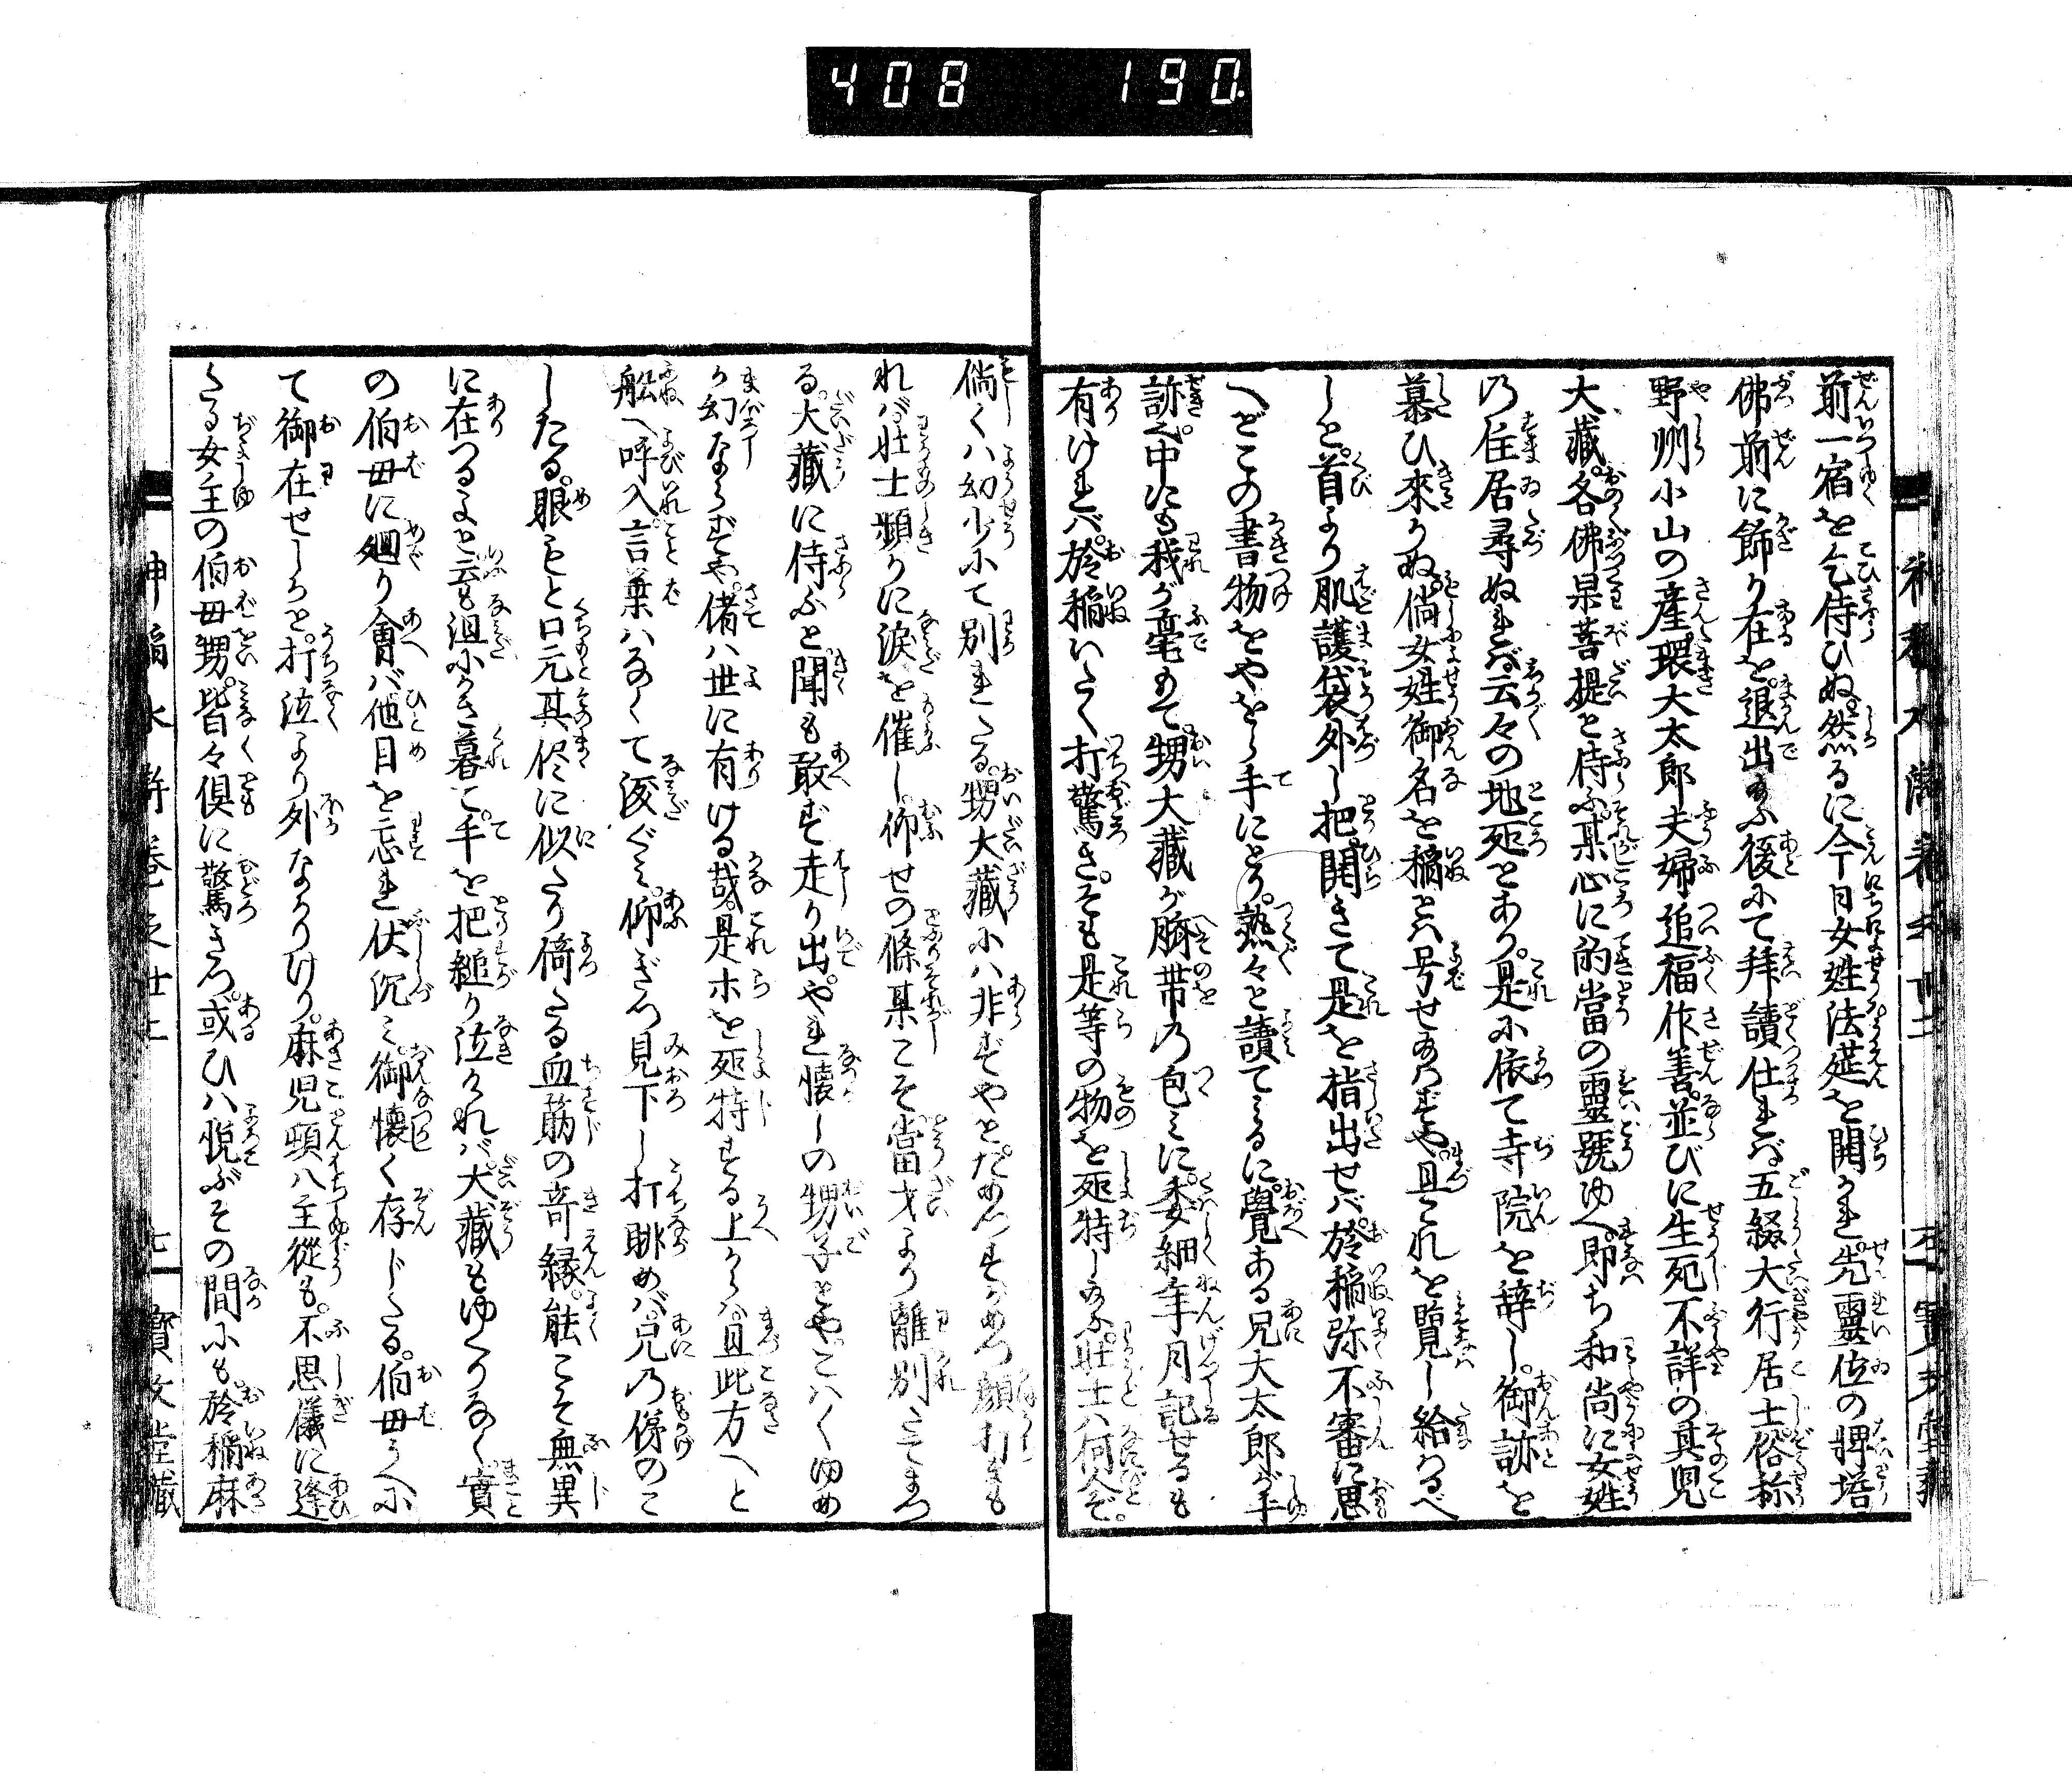 408 190
前一宿を乞侍ひぬ。然るに今日女姓法莚を開かれ先靈位の牌塔
佛前に飾り在を。退出給ふ後にて拜讀仕れば五綴大行居士俗称
野州小山の産環大太郎夫婦追福作善。並びに生死不詳の其児
大藏。各佛果菩提と侍ふ。某心に的當の靈號ゆへ。即ち和尚に女姓
の住居尋ぬれば云々の地処とあり。是に依て寺院を辞し。御跡を
慕ひ來りぬ。倘女姓御名を稲とハ号せ給ハずや。且これを覽し給はるべ
しと。首より肌護袋外し把開きて是を指出せバ。於稲弥不審に思
へどこの書物をやをら手にとり。熟々と讀てみるに。覺ある兄大太郎が手
跡之中にも我が毫もて。甥大藏が臍帯の包ミに。委細年月記せるも
有けれバ。於稲いたく打驚き。そも是等の物を所持し給ふ。壮士ハ何人ぞ。
倘くハ幼少にて別れたる。甥大藏にハ非ずやとだめつすがめつ顔打まも
れバ。壮士頻りに涙を催し。仰せの條某こそ。當才より離別たてまつ
る。大藏に侍ふと聞も敢ず走り出。やれ懐しの甥子とや。こハ〱ゆめ
か幻ならずや。偖ハ世に有ける哉。是ホを所持する上からハ。且此方へと
舩へ呼入。言葉ハなくて涙ぐミ。仰ぎつ見下し打眺めバ。兄の俤のこ
したる。眼もと口元其侭に似たり倚たる血筋の竒縁。能こそ無異
に在つるよと云も沮にかき暮て。手を把縋り泣かれバ。大藏もゆくりなく。實
の伯母に廻り會バ他目を忘れ伏沉ミ。御懐く存じたる。伯母うへに
て御在せしかと。打泣より外なかりけり。麻児頓八主從も。不思儀に逢
たる女主の伯母甥。皆々倶に驚きつ。或ひハ悦ぶその間にも。於稲麻
神稲水滸巻之廿二 七 寶文堂藏